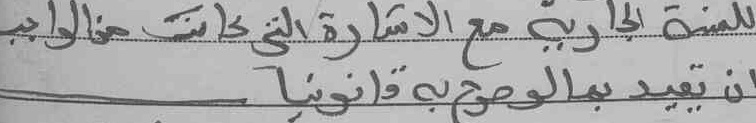 للسنة الجارية مع الاشارة التي كانت من الواجب
ان تقيد بما لوصرح به قانونيا